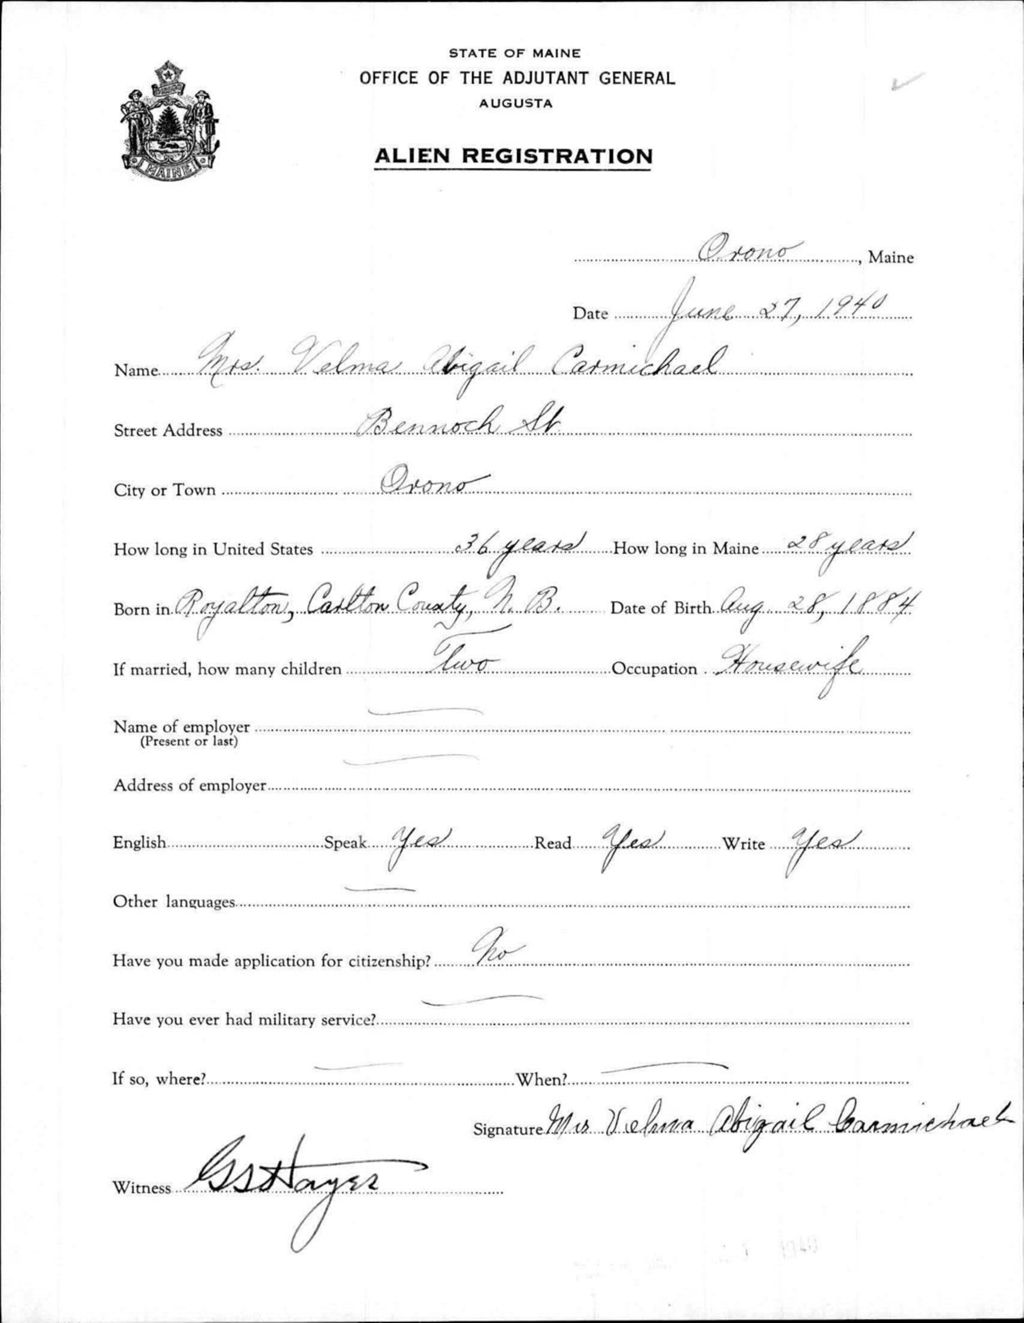 STATE OF MAINE
OFFICE OF THE ADJUTANT GENERAL
AUGUSTA
ALIEN REGISTRATION
MAINE
Orono, Maine
Date June 27, 1940
Name Mrs. Velma Abigail Carmichael
Street Address Bennoch St
City or Town Orono
How long in United States 36 years How long in Maine 28 years
Born in Royalton, Carlton County, N. B. Date of Birth Aug 28, 1884
If married, how many children Two Occupation Housewife
Name of employer
(Present or last)
Address of employer
English Speak Yes Read Yes Write Yes
Other languages
Have you made application for citizenship? No
Have you ever had military service?
If so, where? When?
Signature Mrs Velma Abigail Carmichael
Witness G S Hayes
1940